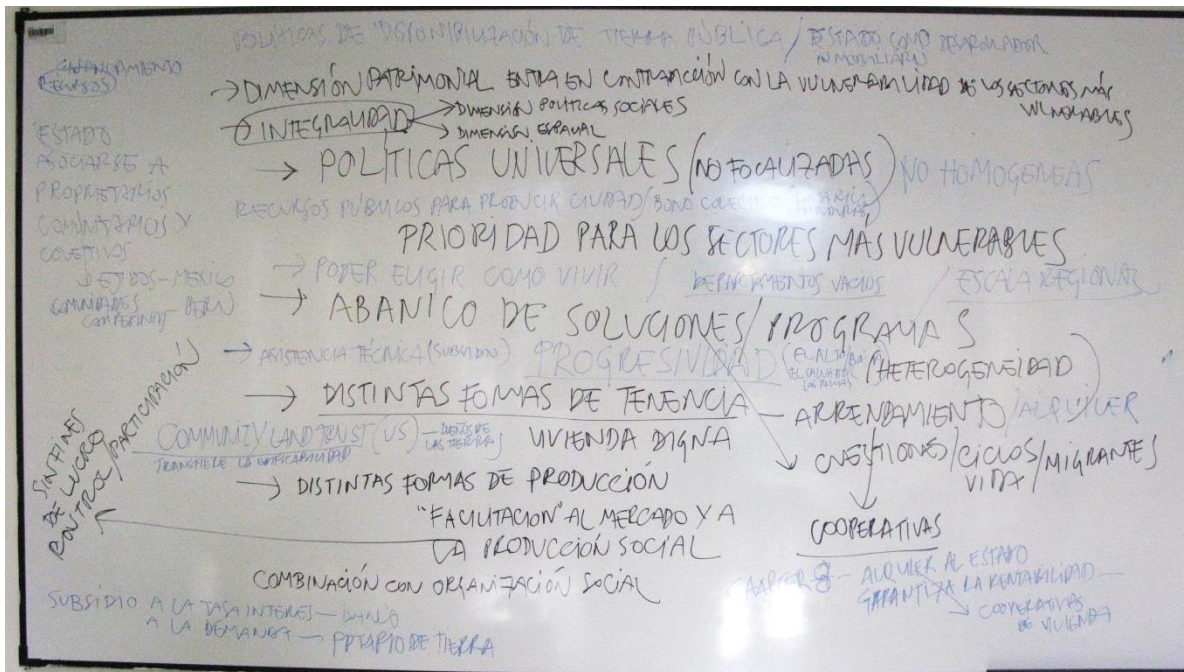 POLÍTICAS DE "DISPONIBILIZACIÓN DE TIERRA PÚBLICA / ESTADO COMO DESARROLLADOR
INMOBILIARIO
FINANCIAMIENTO
RECURSOS
→ DIMENSIÓN PATRIMONIAL ENTRA EN CONTRADICCIÓN CON LA VULNERABILIDAD DE LOS SECTORES MÁS
VULNERABLES
→ INTEGRALIDAD → DIMENSIÓN POLÍTICAS SOCIALES
→ DIMENSIÓN ESPACIAL
ESTADO
ASOCIARSE A
PROPIETARIOS
COMUNITARIOS Y
COLETIVOS
→ EJIDOS - MEXICO
COMUNIDADES
CAMPESINAS - PERÚ
→ POLÍTICAS UNIVERSALES (NO FOCALIZADAS) NO HOMOGENEAS
RECURSOS PÚBLICOS PARA PRODUCIR CIUDAD / BONO COLECTIVO
PRIORIDAD PARA LOS SECTORES MÁS VULNERABLES
→ PODER ELIGIR COMO VIVIR / DEPARTAMENTOS VACIOS / ESCALA REGIONAL
→ ABANICO DE SOLUCIONES / PROGRAMAS
→ ASISTENCIA TÉCNICA (SUBSIDIO) PROGRESIVIDAD (HETEROGENEIDAD)
→ DISTINTAS FORMAS DE TENENCIA — ARRENDAMIENTO / ALQUILER
COMMUNITY LAND TRUST (US) — DUEÑOS DE LAS TIERRAS
TRANSFIERE LA EDIFICABILIDAD
VIVIENDA DIGNA
CUESTIONES / CICLOS VIDA / MIGRANTES
→ DISTINTAS FORMAS DE PRODUCCIÓN
"FACILITACION" AL MERCADO Y A
LA PRODUCCIÓN SOCIAL
SIN FINES
DE LUCRO
CONTROL / PARTICIPACIÓN
COOPERATIVAS
COMBINACIÓN CON ORGANIZACIÓN SOCIAL
8 — ALQUILER AL ESTADO
GARANTIZA LA RENTABILIDAD —
→ COOPERATIVAS
DE VIVIENDA
SUBSIDIO A LA TASA INTERES —
A LA DEMANDA —